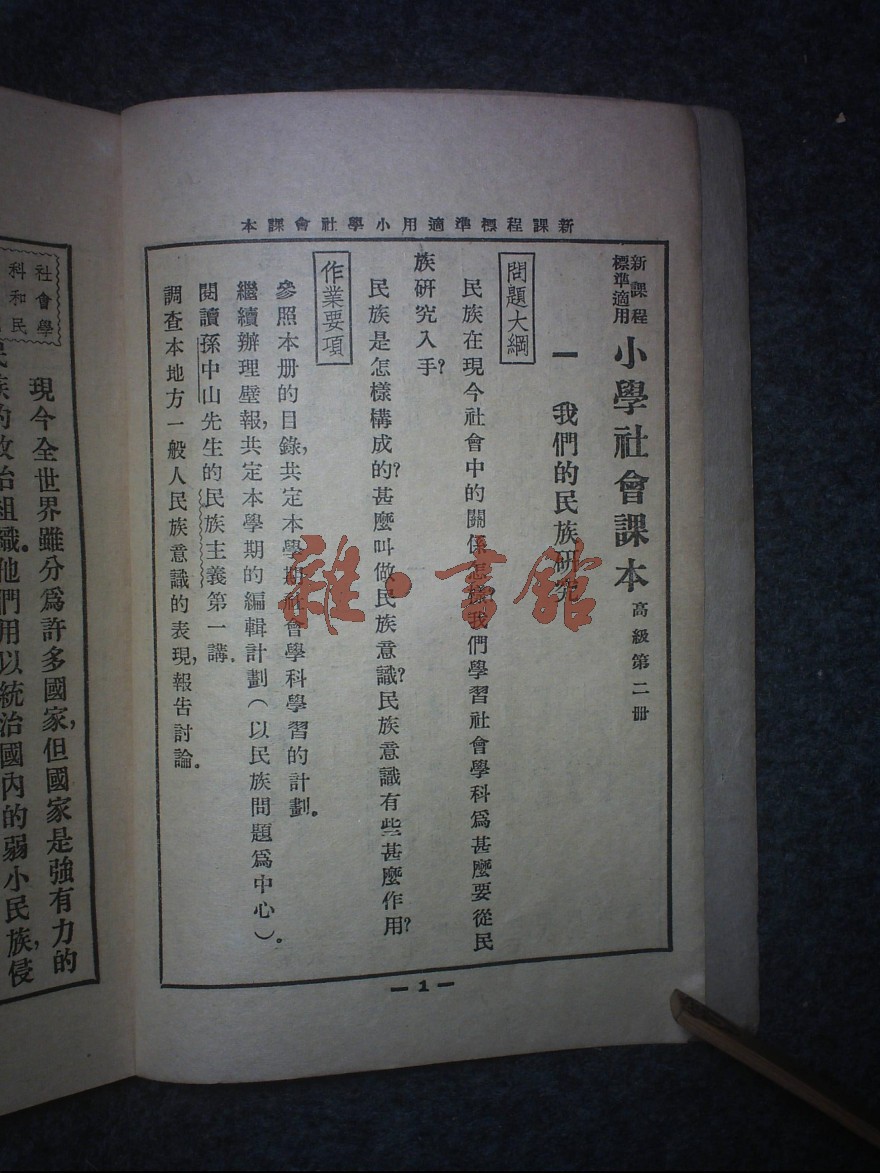 新課程標準適用小學社會課本
新課程
標準適用
小學社會課本 高級第二册
一 我們的民族研究
問題大綱
民族在現今社會中的關係怎樣?我們學習社會學科爲甚麼要從民
族研究入手?
民族是怎樣構成的?甚麼叫做民族意識?民族意識有些甚麼作用?
作業要項
參照本册的目錄,共定本學期社會學科學習的計劃。
繼續辦理壁報,共定本學期的編輯計劃(以民族問題爲中心)。
閱讀孫中山先生的民族主義第一講。
調查本地方一般人民族意識的表現,報告討論。
— 1 —
社會學
科和民
現今全世界雖分爲許多國家,但國家是強有力的
民族的政治組織。他們用以統治國內的弱小民族,侵
雜·書館